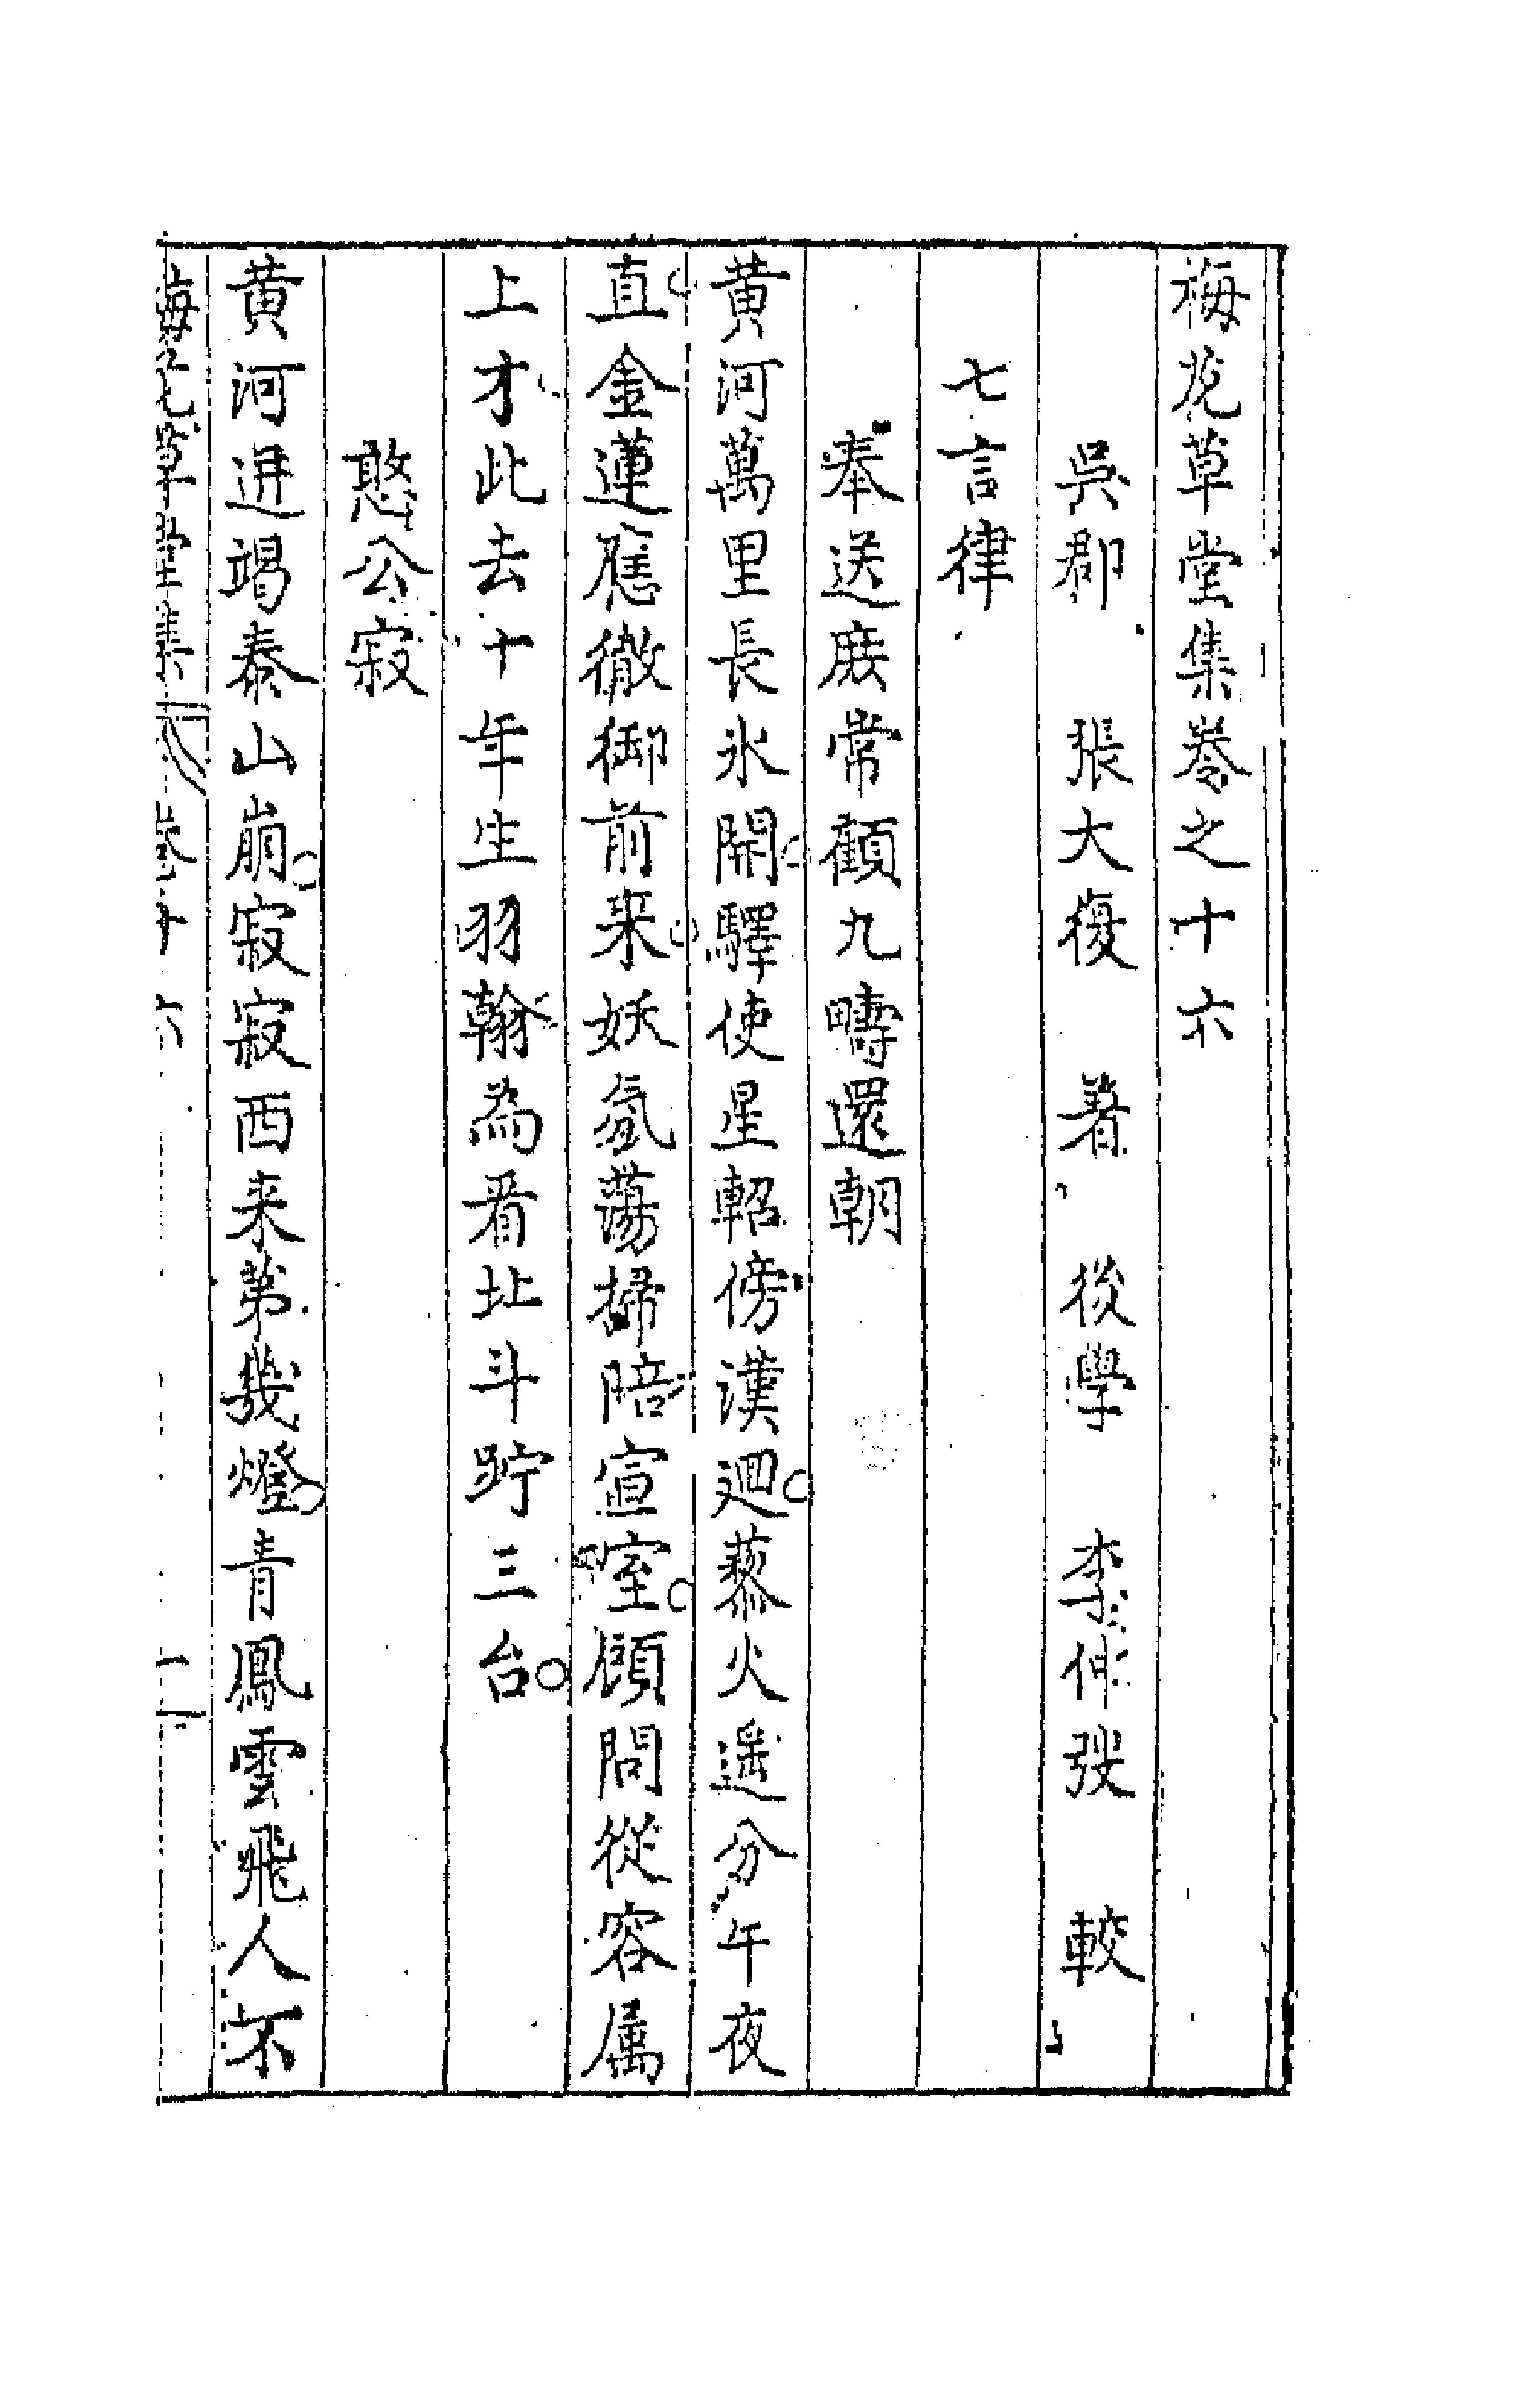 梅花草堂集卷之十六
吳郡 張大復 著 後學 李仲弢 較
七言律
奉送庶常顧九疇還朝
黃河萬里長氷開驛使星軺傍漢廻藜火遥分午夜
直金蓮應徹御前来妖氛蕩掃陪宣室顧問從容属
上才此去十年生羽翰為看北斗跱三台
憨公寂
黃河迸竭泰山崩寂寂西来第幾燈青鳳雲飛人不
梅花草堂集 卷十六 一